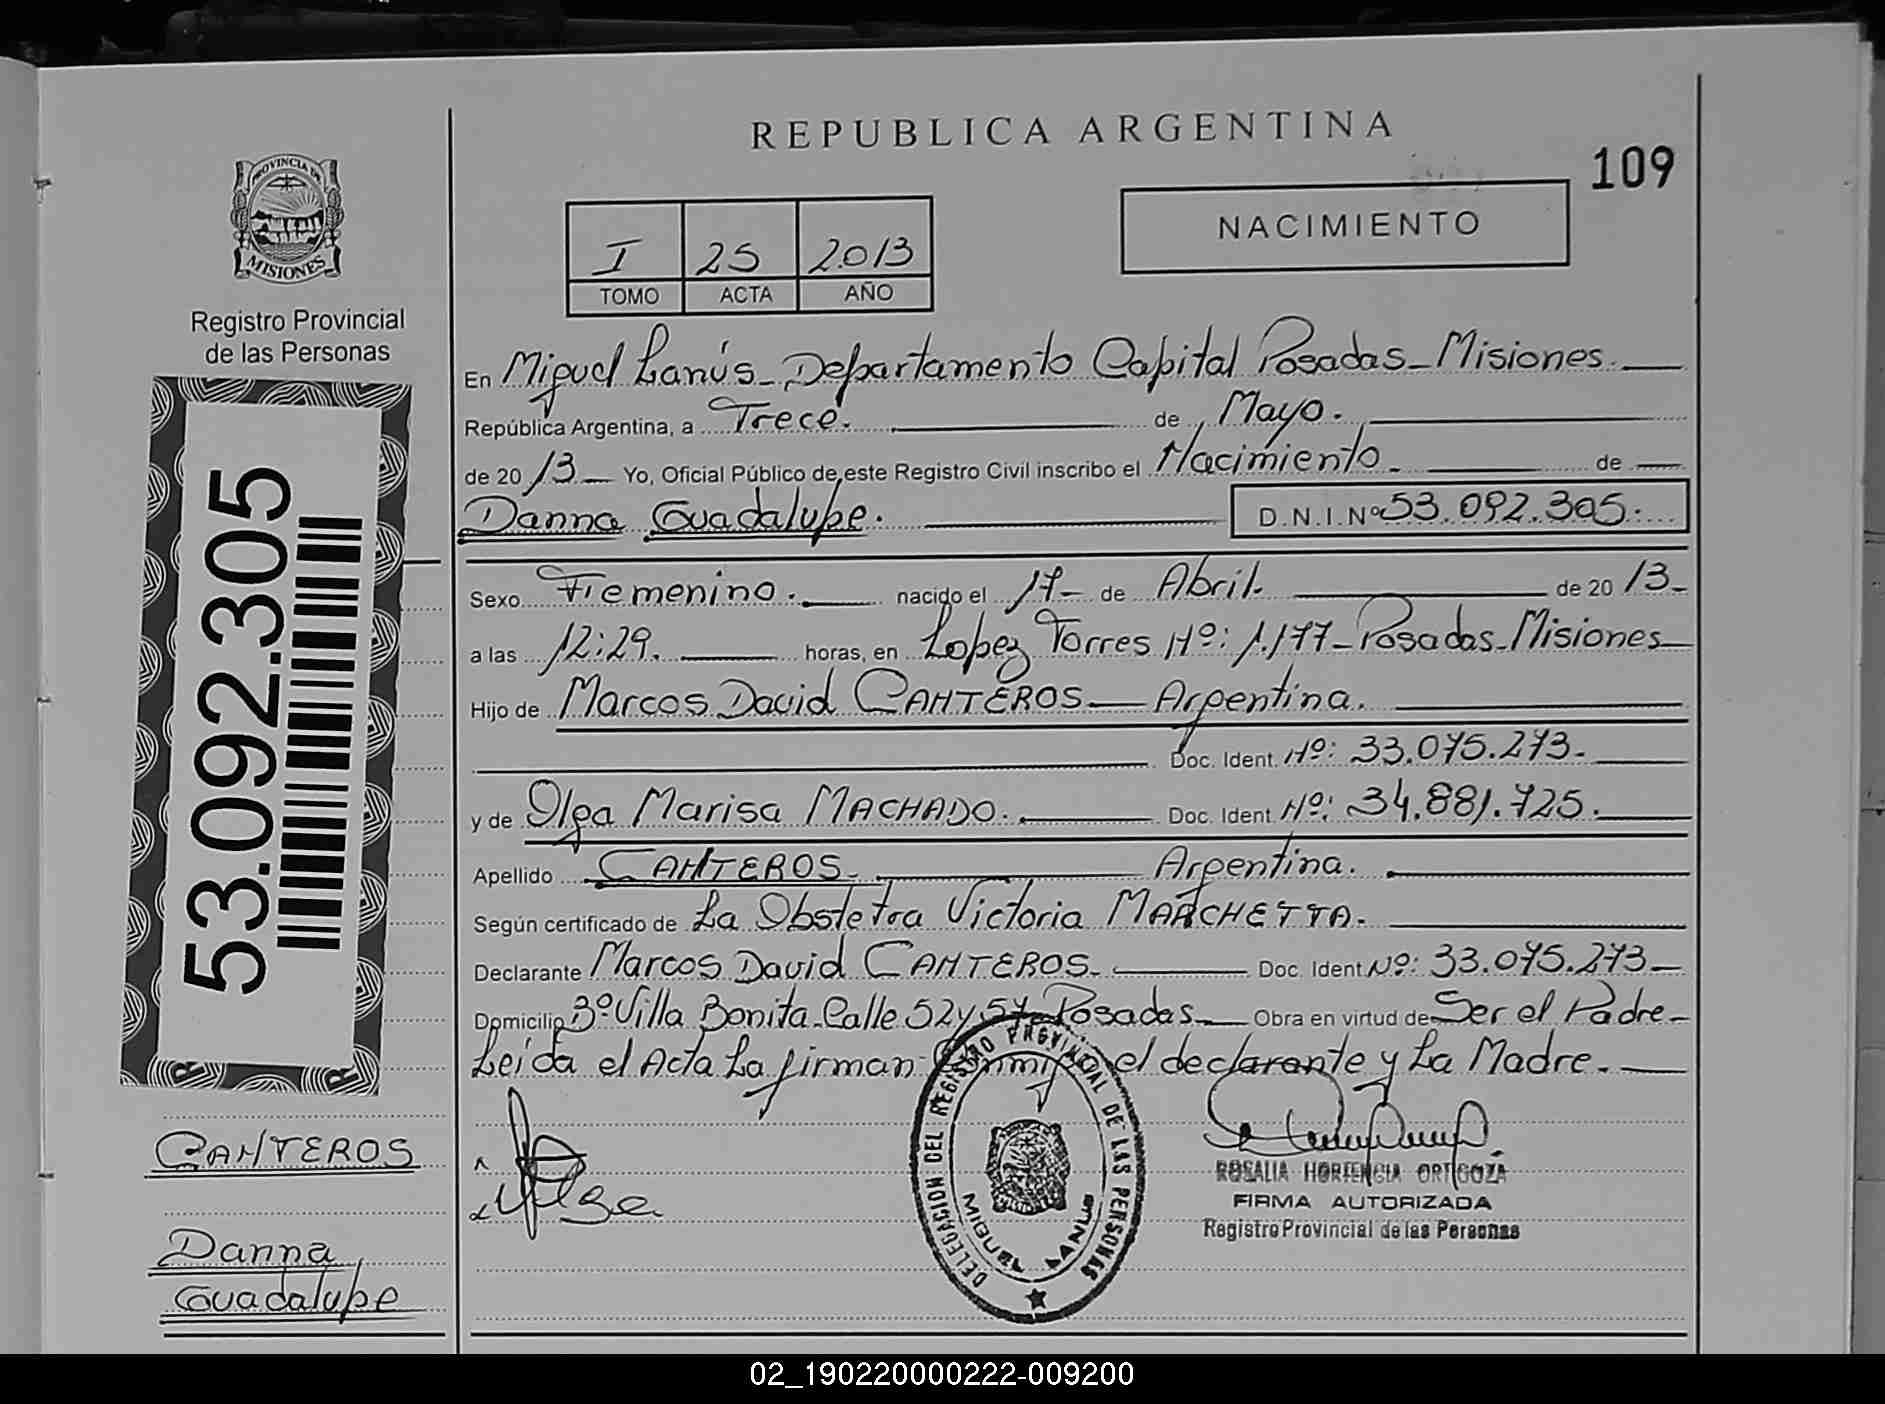 REPUBLICA ARGENTINA
109
PROVINCIA DE
MISIONES
Registro Provincial
de las Personas
I 25 2013
TOMO ACTA AÑO
NACIMIENTO
En Miguel Lanús - Departamento Capital Posadas - Misiones.
República Argentina, a Trece. de Mayo.
de 20 13 Yo, Oficial Público de este Registro Civil inscribo el Nacimiento de
Danna Guadalupe. D.N.I.Nº 53.092.305.
53.092.305
Sexo Femenino. nacido el 17 - de Abril. de 20 13 -
a las 12:29. horas, en Lopez Torres Nº: 1.177 - Posadas - Misiones
Hijo de Marcos David CANTEROS - Argentina.
Doc. Ident. Nº: 33.075.273.
y de Olga Marisa MACHADO. Doc. Ident. Nº: 34.881.725.
Apellido CANTEROS. Argentina.
Según certificado de La Obstetra Victoria MARCHETTA.
Declarante Marcos David CANTEROS. Doc. Ident Nº: 33.075.273
Domicilio Bº Villa Bonita - Calle 52 y 57 - Posadas Obra en virtud de Ser el Padre -
Leída el Acta La firman Conmigo el declarante y La Madre.
CANTEROS
Danna
Guadalupe
DELEGACION DEL REGISTRO PROVINCIAL DE LAS PERSONAS
MIGUEL LANUS
ROSALIA HORTENCIA ORTIGOZA
FIRMA AUTORIZADA
Registro Provincial de las Personas
02_190220000222-009200